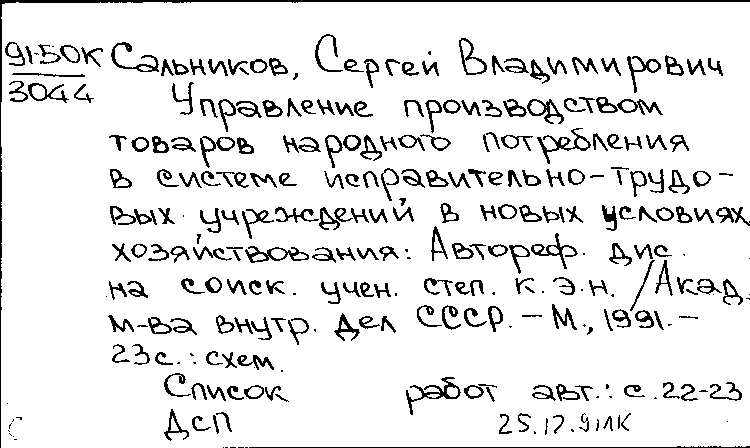 91-50К Сальников, Сергей Владимирович
3044 Управление производством
товаров народного потребления
в системе исправительно-трудо-
вых учреждений в новых условиях
хозяйствования: Автореф. дис.
на соиск. учен. степ. к.э.н. /Акад.
м-ва внутр. дел СССР. – М., 1991. –
23с.: схем.
Список работ авт.: с. 22-23
ДСП